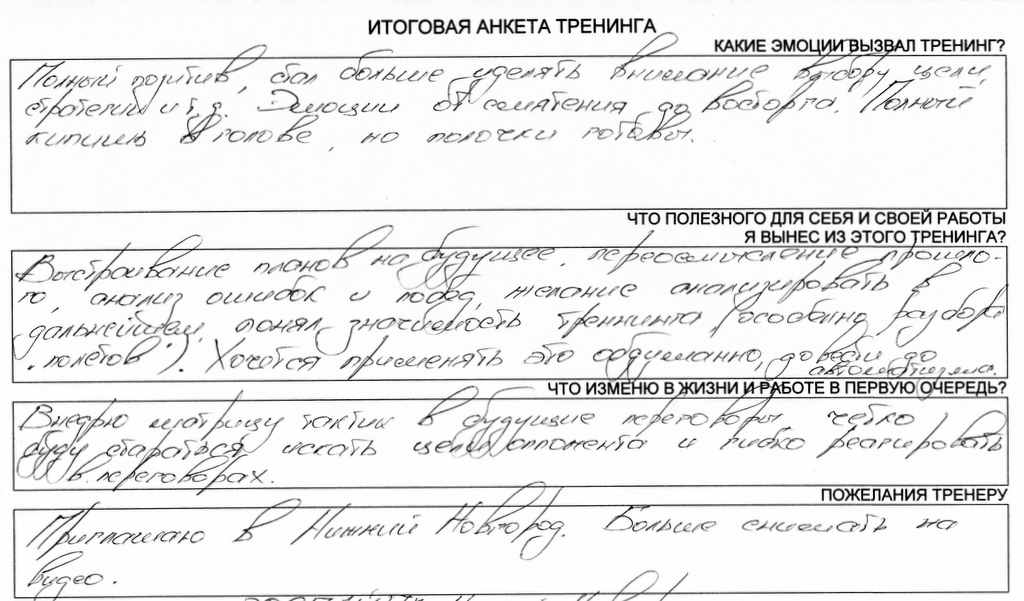 ИТОГОВАЯ АНКЕТА ТРЕНИНГА
КАКИЕ ЭМОЦИИ ВЫЗВАЛ ТРЕНИНГ?
Полный позитив, стал больше уделять внимание выбору цели,
стратегии и т.д. Эмоции от смятения до восторга. Полный
кипиш в голове, но полочки готовы.
ЧТО ПОЛЕЗНОГО ДЛЯ СЕБЯ И СВОЕЙ РАБОТЫ
Я ВЫНЕС ИЗ ЭТОГО ТРЕНИНГА?
Выстраивание планов на будущее, переосмысление прошло-
го, анализ ошибок и побед, желание анализировать в
дальнейшем, понял значимость тренинга (особенно разбора
"полётов"). Хочется применять это обдуманно, довести до
автоматизма.
ЧТО ИЗМЕНЮ В ЖИЗНИ И РАБОТЕ В ПЕРВУЮ ОЧЕРЕДЬ?
Внедрю матрицу тактик в будущие переговоры, четко
буду стараться искать цели оппонента и гибко реагировать
в переговорах.
ПОЖЕЛАНИЯ ТРЕНЕРУ
Приглашаю в Нижний Новгород. Больше снимать на
видео.